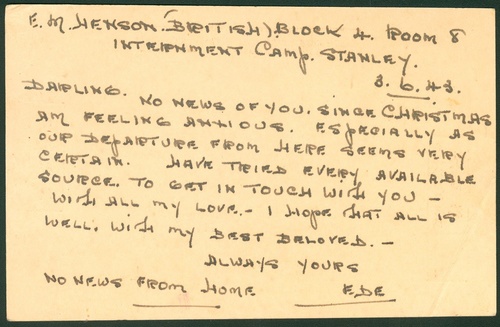 E. M. HENSON. (BRITISH). BLOCK 4. ROOM 8
INTERNMENT CAMP. STANLEY.
3.6.43.
DARLING.
NO NEWS OF YOU. SINCE CHRISTMAS
AM FEELING ANXIOUS. ESPECIALLY AS
OUR DEPARTURE FROM HERE SEEMS VERY
CERTAIN. HAVE TRIED EVERY AVAILABLE
SOURCE. TO GET IN TOUCH WITH YOU –
WITH ALL MY LOVE. – I HOPE THAT ALL IS
WELL. WITH MY BEST BELOVED. –
ALWAYS YOURS
NO NEWS FROM HOME EDE